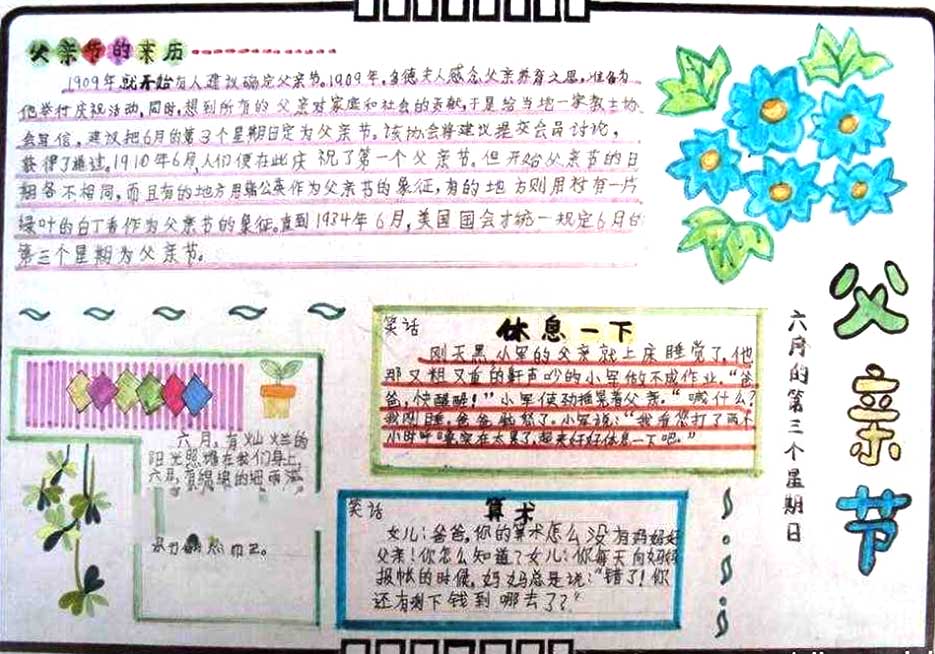 父亲节的来历
1909年就开始有人建议确定父亲节。1909年,多德夫人感念父亲养育之恩,准备为
他举行庆祝活动,同时,想到所有的父亲对家庭和社会的贡献,于是给当地一家教士协
会写信,建议把6月的第3个星期日定为父亲节。该协会将建议提交会员讨论,
获得了通过。1910年6月,人们便在此庆祝了第一个父亲节。但开始父亲节的日
期各不相同,而且有的地方用蒲公英作为父亲节的象征,有的地方则用衬有一片
绿叶的白丁香作为父亲节的象征。直到1934年6月,美国国会才统一规定6月的
第三个星期为父亲节。
父亲节
六月的第三个星期日
笑话
休息一下
刚天黑,小军的父亲就上床睡觉了,他
那又粗又重的鼾声吵的小军做不成作业。“爸
爸,快醒醒!”小军使劲摇晃着父亲。“喊什么?
我刚睡。爸爸 怒了。小军说:“我看你打了两个
小时呼噜实在太累了,起来好好休息一下吧。”
六月,有灿烂的
阳光照耀在我们身上,
六月,有绵绵的细雨
笑话
算术
女儿:爸爸,你的算术怎么没有妈妈好
父亲!你怎么知道?女儿:你每天向妈妈
报帐的时候,妈妈总是说:“错了!你
还有剩下钱到哪去了?”